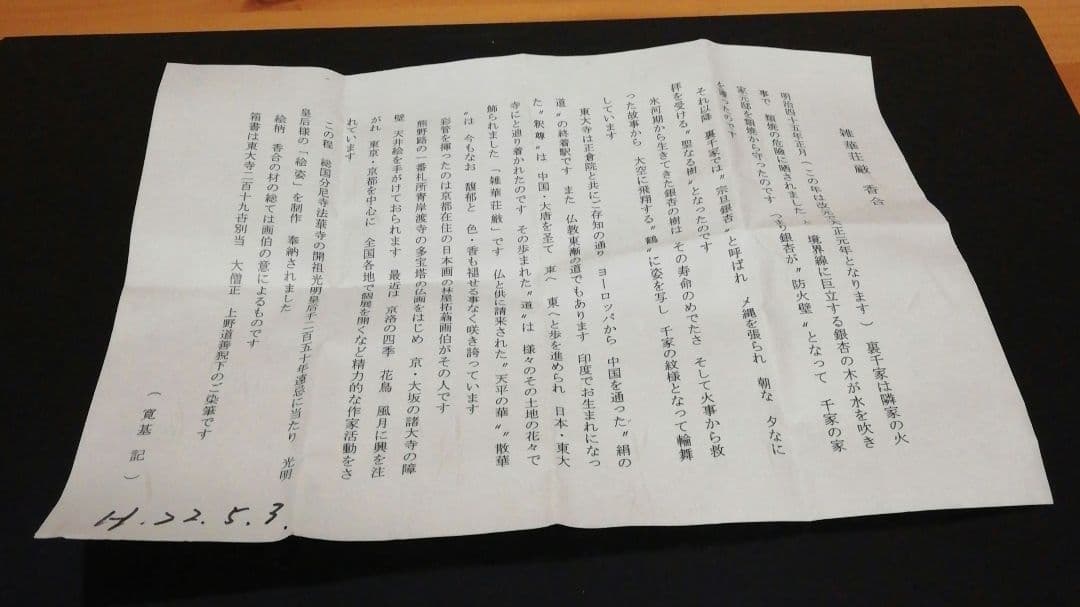 雑華荘厳 香合
明治四十五年正月（この年は改元 大正元年となります）裏千家は隣家の火
事で 類焼の危険に晒されました 境界線に巨立する銀杏の木が水を吹き
家元邸を類焼から守ったのです つまり銀杏が〝防火壁〟となって 千家の家
を護ったのです
それ以降 裏千家では〝宗旦銀杏〟と呼ばれ 〆縄を張られ 朝な 夕なに
拝を受ける〝聖なる樹〟となったのです
氷河期から生きてきた銀杏の樹は その寿命のめでたさ そして火事から救
った故事から 大空に飛翔する〝鶴〟に姿を写し 千家の紋様となって輪舞
しています
東大寺は正倉院と共にご存知の通り ヨーロッパから 中国を通った〝絹の
道〟の終着駅です また 仏教東漸の道でもあります 印度でお生まれになっ
た〝釈尊〟は 中国・大唐を至て 東へ 東へと歩を進められ 日本・東大
寺にと辿り着かれたのです その歩まれた〝道〟は 様々のその土地の花々で
飾られました 「雑華荘厳」です 仏と供に請来された〝天平の華〟〝散華
〟は 今もなお 馥郁と 色・香も褪せる事なく咲き誇っています
彩管を揮ったのは京都在住の日本画の林屋拓蓊画伯がその人です
熊野路の一番札所青岸渡寺の多宝塔の仏画をはじめ 京・大坂の諸大寺の障
壁 天井絵を手がけておられます 最近は 京洛の四季 花鳥 風月に興を注
がれ 東京・京都を中心に 全国各地で個展を開くなど精力的な作家活動をさ
れています
この程 総国分尼寺法華寺の開祖光明皇后千二百五十年遠忌に当たり 光明
皇后様の「絵姿」を制作 奉納されました
絵柄 香合の材の総ては画伯の意によるものです
箱書は東大寺二百十九世別当 大僧正 上野道善猊下のご染筆です
（寛基 記）
H.22.5.3.